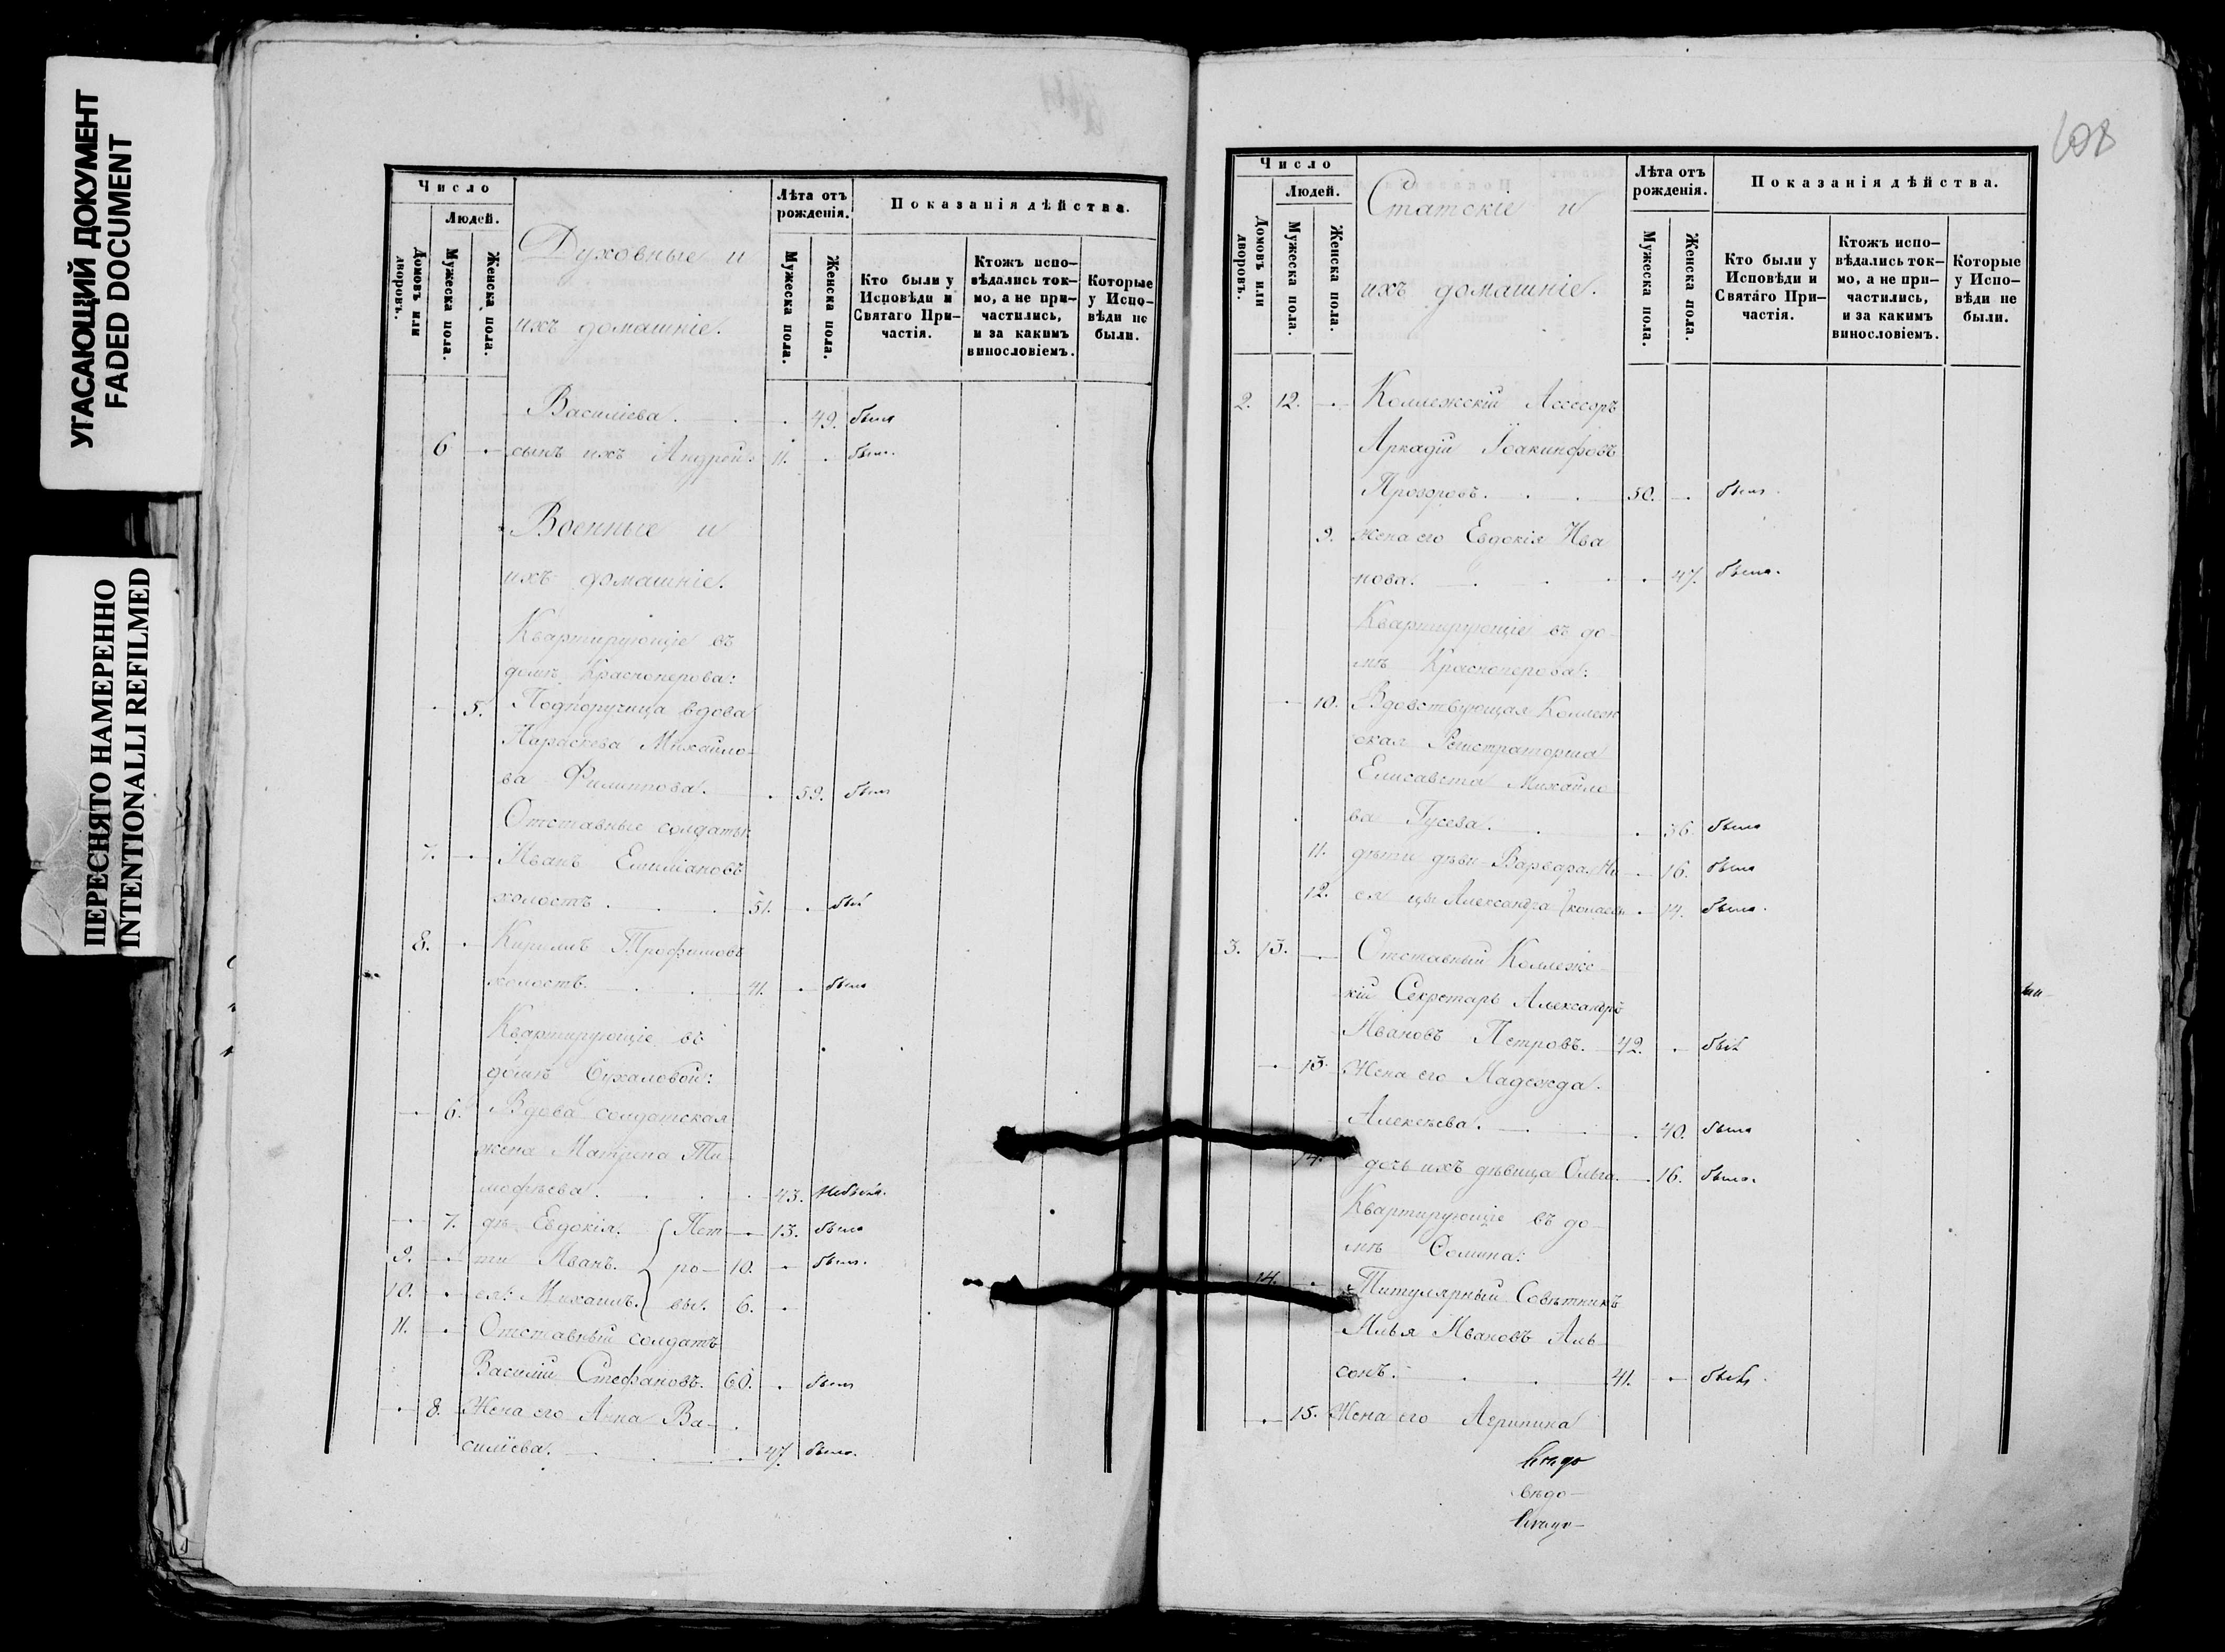 УГАСАЮЩИЙ ДОКУМЕНТ
FADED DOCUMENT
ПЕРЕСНЯТО НАМЕРЕННО
INTENTIONALLI REFILMED
Число
Людей.
Домовъ или дворовъ.
Мужеска пола.
Женска пола.
Духовные и
ихъ домашніе.
Лѣта отъ рожденія.
Мужеска пола.
Женска пола.
Показанія дѣйства.
Кто были у Исповѣди и Святаго Причастія.
Ктожъ исповѣдались токмо, а не причастились, и за какимъ винословіемъ.
Которые у Исповѣди не были.
Василіева. 49. была
6 сынъ ихъ Андрей. 11. былъ.
Военные и
ихъ домашніе.
Квартирующіе въ
домѣ Красноперова:
5. Подпоручица вдова
Параскева Михайло-
ва Филиппова. 59. была
Отставные солдаты:
7. Иванъ Емиліановъ
холостъ. 51. былъ
8. Кириллъ Трофимовъ
холостъ. 41. былъ
Квартирующіе въ
домѣ Сухаловой:
6. Вдова солдатская
жена Матрена Ти-
мофѣева. 43. Небыла.
7. дѣ- Евдокія. Пет- 13. была
9. ти Иванъ. ро- 10. былъ.
10. ея: Михаилъ. вы. 6.
11. Отставный солдатъ
Василій Стефановъ. 60. былъ
8. Жена его Анна Ва-
силіева. 47. была.
Число
Людей.
Домовъ или дворовъ.
Мужеска пола.
Женска пола.
Статскіе и
ихъ домашніе.
Лѣта отъ рожденія.
Мужеска пола.
Женска пола.
Показанія дѣйства.
Кто были у Исповѣди и Святаго Причастія.
Ктожъ исповѣдались токмо, а не причастились, и за какимъ винословіемъ.
Которые у Исповѣди не были.
2. 12. Коллежскій Ассесоръ
Аркадій Іоакинфовъ
Прозоровъ. 50. былъ.
9. жена его Евдокія Ива
нова. 47. была.
Квартирующіе въ до-
мѣ Красноперова:
10. Вдовствующая Коллеж
ская Регистраторша
Елисавета Михайло
ва Гусева. 36. была
11. дѣти дѣви- Варвара Ни 16. была
12. ея цы Александра 14. была.
3. 13. Отставный Коллежс-
кій Секретарь Александръ
Ивановъ Петровъ. 42. былъ
13. Жена его Надежда
Алексѣева. 40. была
14. дочь ихъ дѣвица Ольга. 16. была.
Квартирующіе въ до-
мѣ Сомина:
14. Титулярный Совѣтникъ
Илья Ивановъ Аль
сонъ. 41. былъ.
15. Жена его Агрипина